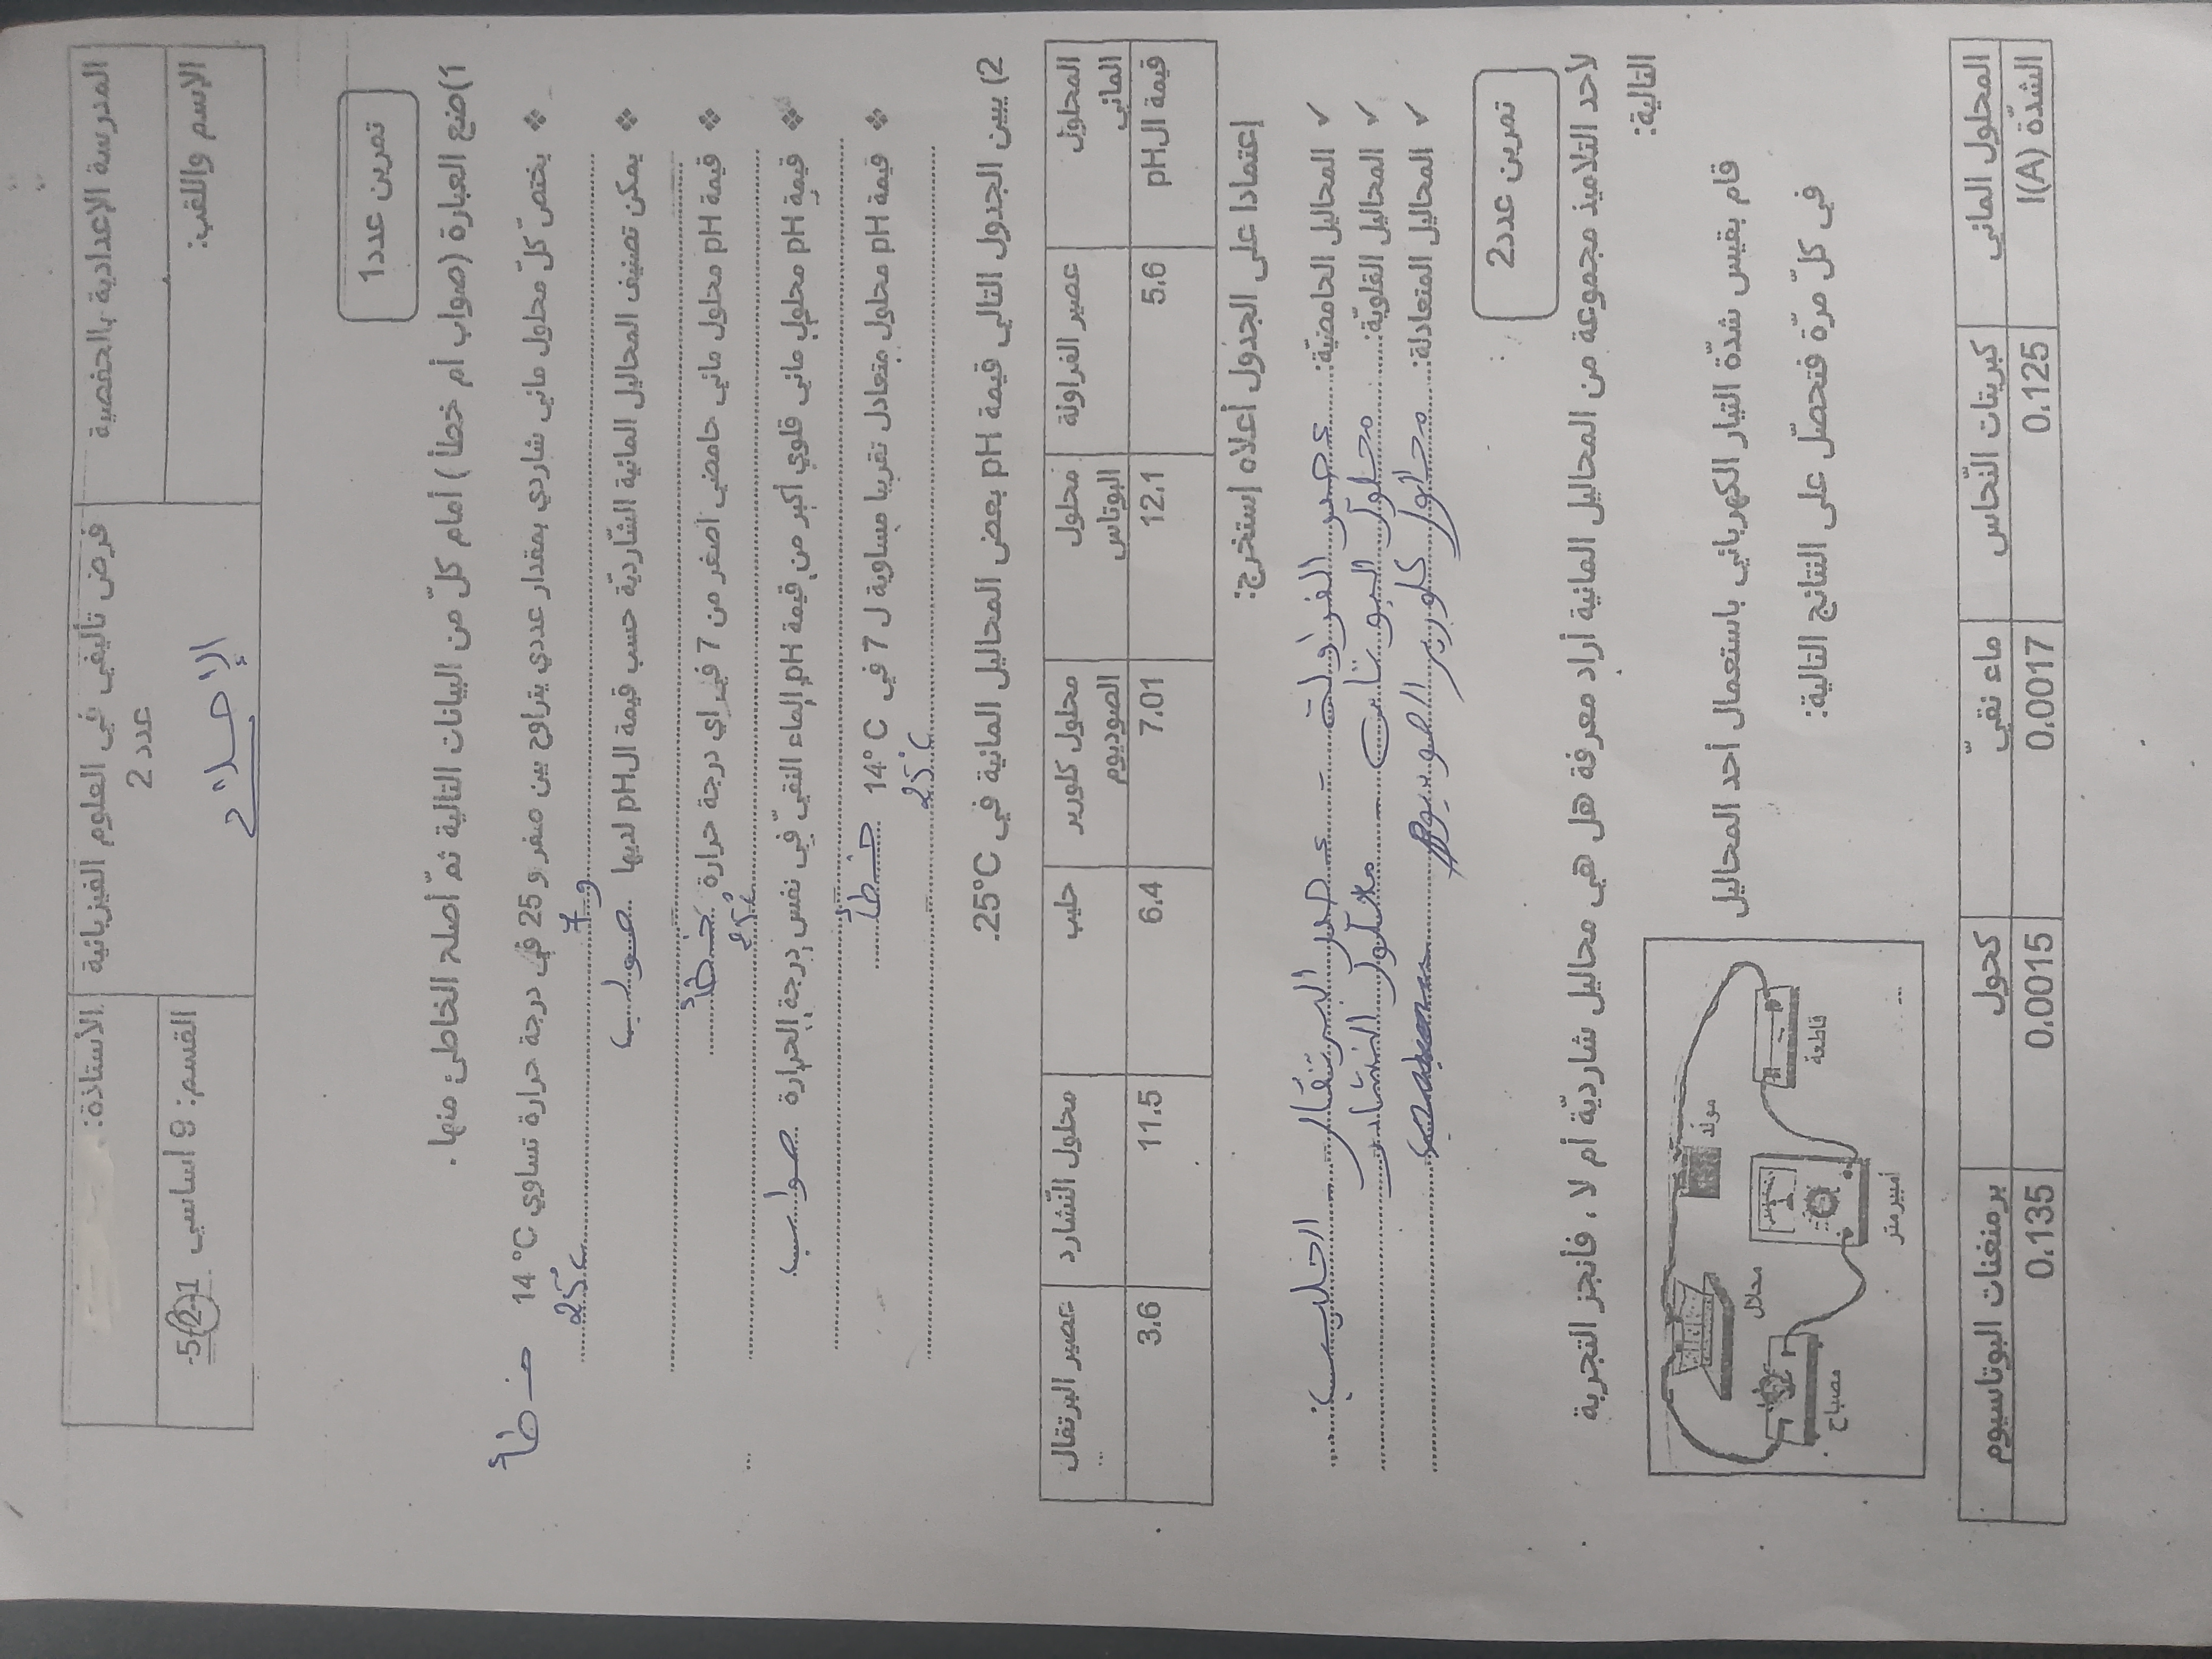 المدرسة الإعدادية بالحفصية
فرض تأليفي في العلوم الفيزيائية
عدد 2
الأستاذة:
الإسم واللقب:
الإصلاح
القسم: 9 اساسي 1-2-5
تمرين عدد1
1)ضع العبارة (صواب أم خطأ) أمام كلّ من البيانات التالية ثمّ أصلح الخاطئ منها.
❖ يختصّ كلّ محلول مائي شاردي بمقدار عددي يتراوح بين صفر و 25 في درجة حرارة تساوي 14 °C خطأ
25
❖ يمكن تصنيف المحاليل المائية الشّاردية حسب قيمة الـpH لديها صواب
❖ قيمة pH محلول مائي حامضي أصغر من 7 في أي درجة حرارة خطأ
❖ قيمة pH محلول مائي قلوي أكبر من قيمة pH الماء النقيّ في نفس درجة الحرارة صواب
❖ قيمة pH محلول متعادل تقريبا مساوية ل 7 في 14°C خطأ
25
2) يبين الجدول التالي قيمة pH بعض المحاليل المائية في 25°C.
المحلول المائي عصير الفراولة محلول البوتاس محلول كلوريد الصوديوم حليب محلول النّشادر عصير البرتقال
قيمة الـpH 5.6 12.1 7.01 6.4 11.5 3.6
إعتمادا على الجدول أعلاه إستخرج:
✓ المحاليل الحامضيّة: عصير الفراولة - عصير البرتقال الحليب
✓ المحاليل القلويّة: محلول البوتاس - محلول النشادر
✓ المحاليل المتعادلة: محلول كلوريد الصوديوم
تمرين عدد2
لأحد التلاميذ مجموعة من المحاليل المائية أراد معرفة هل هي محاليل شارديّة أم لا ، فأنجز التجربة
التالية:
قام بقيس شدّة التيار الكهربائي باستعمال أحد المحاليل
في كلّ مرّة فتحصّل على النتائج التالية:
مولد
محلال
قاطعة
أمبيرمتر
مصباح
المحلول المائي كبريتات النّحاس ماء نقيّ كحول برمنغنات البوتاسيوم
الشدّة I(A) 0.125 0.0017 0.0015 0.135